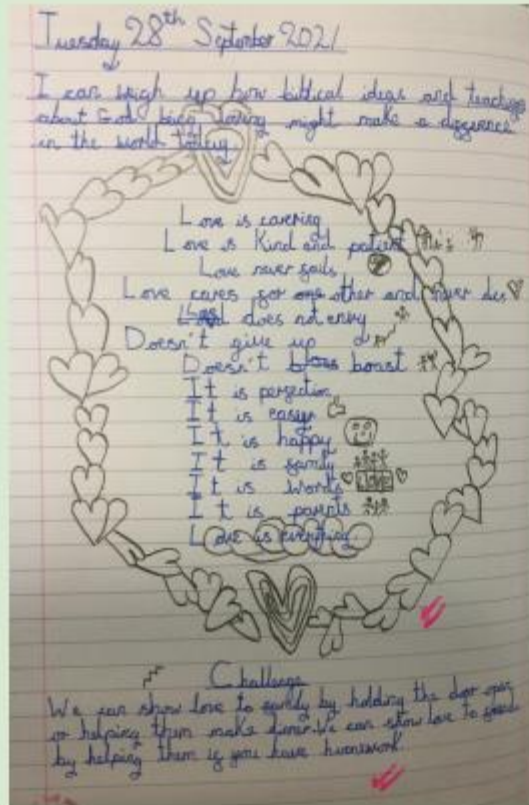 Tuesday 28th September 2021
I can weigh up how biblical ideas and teachings
about God being loving might make a difference
in the world today.
Love is
Love is Kind and patient
Love never fails
Love cares for other and never
does not envy
Doesn't give up
Doesn't boast
It is perfection
It is easy
It is happy
It is family
It is words
love
It is parents
Love is everything.
Challenge
We can show love to family by holding the door open
or helping them make dinner. We can show love to
by helping them if you have homework.